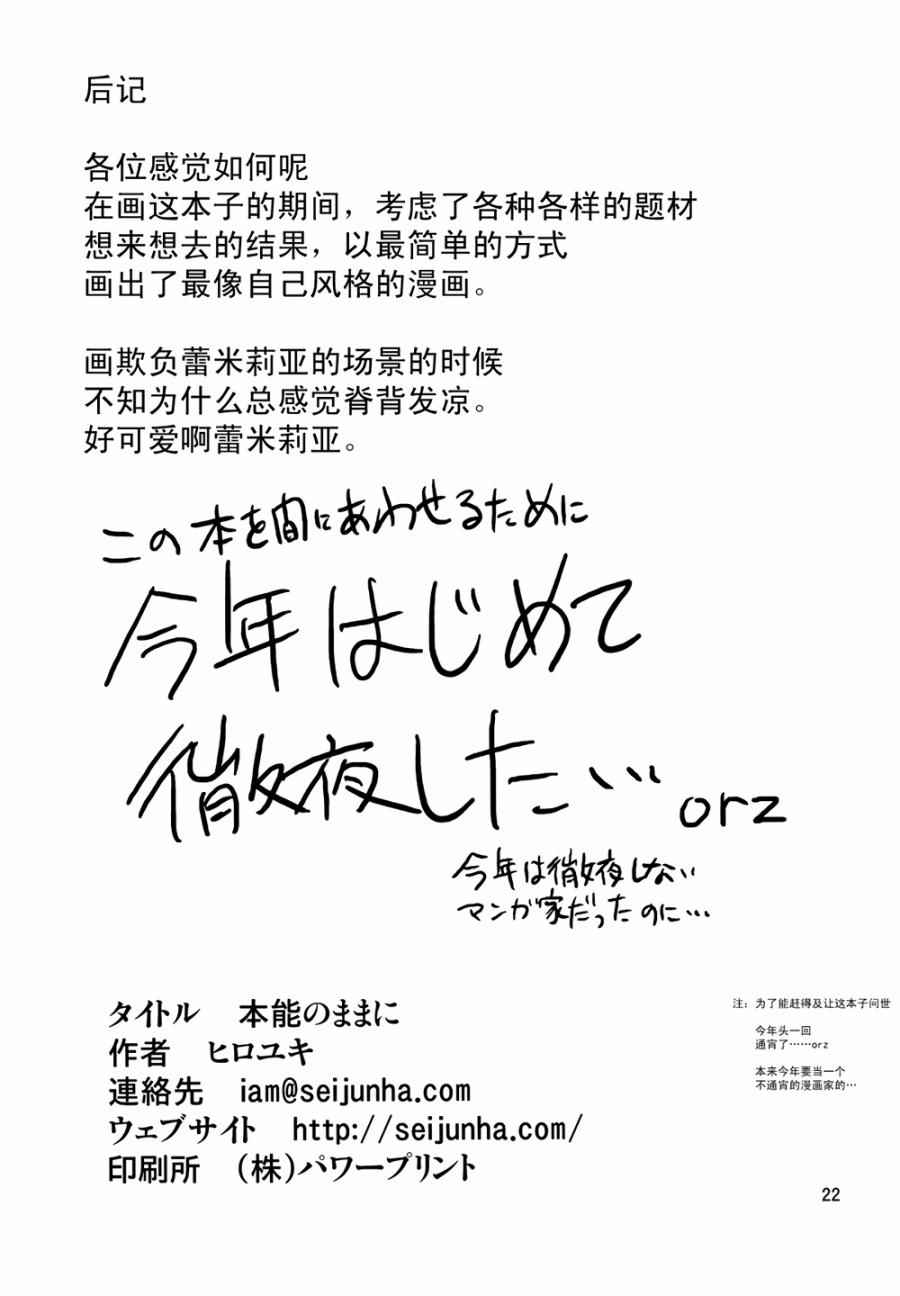 后记
各位感觉如何呢
在画这本子的期间，考虑了各种各样的题材
想来想去的结果，以最简单的方式
画出了最像自己风格的漫画。
画欺负蕾米莉亚的场景的时候
不知为什么总感觉脊背发凉。
好可爱啊蕾米莉亚。
この本を間にあわせるために
今年はじめて
徹夜した… orz
今年は徹夜しない
マンガ家だったのに…
タイトル　本能のままに
作者　ヒロユキ
連絡先　iam@seijunha.com
ウェブサイト　http://seijunha.com/
印刷所　（株）パワープリント
注：为了能赶得及让这本子问世
今年头一回
通宵了……orz
本来今年要当一个
不通宵的漫画家的…
22